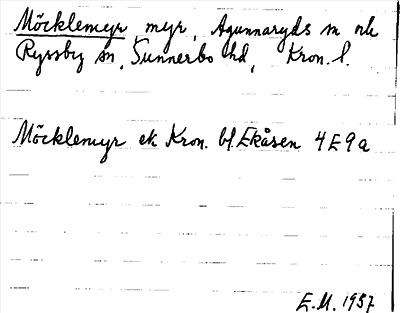 Möcklemyr, myr, Agunnaryds sn och
Ryssby sn, Sunnerbo hd, Kron. l.
Möcklemyr ek Kron. bl. Ekåsen 4E9a
E.M. 1957